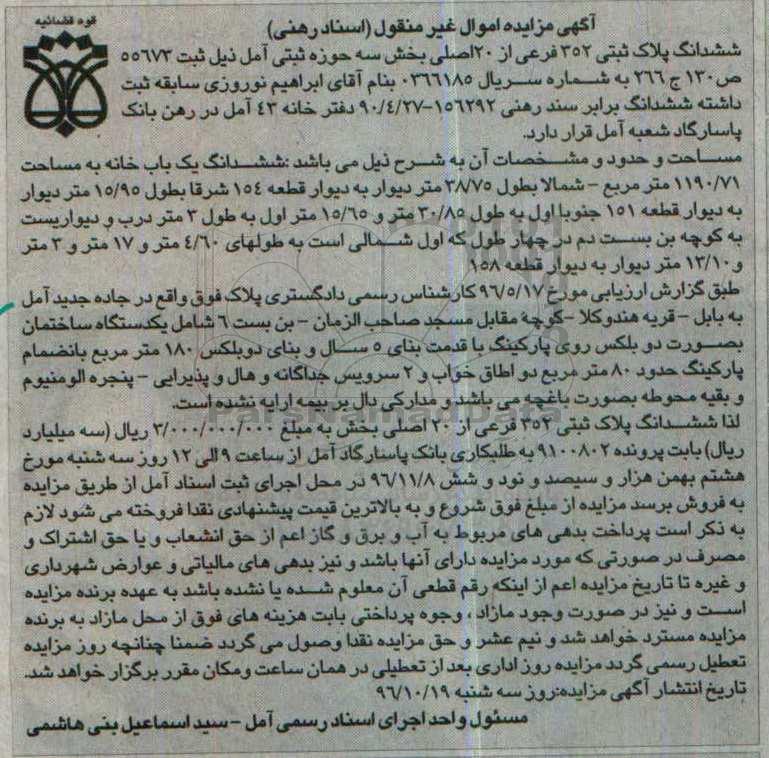 قوه قضائیه
آگهی مزایده اموال غیر منقول (اسناد رهنی)
ششدانگ پلاک ثبتی ۳۵۲ فرعی از ۲۰اصلی بخش سه حوزه ثبتی آمل ذیل ثبت ۵۵۶۷۳
ص۱۳۰ ج ۲۶۶ به شماره سریال ۰۳۶۶۱۸۵ بنام آقای ابراهیم نوروزی سابقه ثبت
داشته ششدانگ برابر سند رهنی ۱۵۶۲۹۲-۹۰/۴/۲۷ دفتر خانه ۴۳ آمل در رهن بانک
پاسارگاد شعبه آمل قرار دارد.
مساحت و حدود و مشخصات آن به شرح ذیل می باشد :ششدانگ یک باب خانه به مساحت
۱۱۹۰/۷۱ متر مربع – شمالا بطول ۳۸/۷۵ متر دیوار به دیوار قطعه ۱۵۴ شرقا بطول ۱۵/۹۵ متر دیوار
به دیوار قطعه ۱۵۱ جنوبا اول به طول ۳۰/۸۵ متر و ۱۵/۶۵ متر اول به طول ۳ متر درب و دیواریست
به کوچه بن بست دم در چهار طول که اول شمالی است به طولهای ۴/۶۰ متر و ۱۷ متر و ۳ متر
و ۱۳/۱۰ متر دیوار به دیوار قطعه ۱۵۸
طبق گزارش ارزیابی مورخ ۹۶/۵/۱۷ کارشناس رسمی دادگستری پلاک فوق واقع در جاده جدید آمل
به بابل – قریه هندوکلا –کوچه مقابل مسجد صاحب الزمان – بن بست ۶ شامل یکدستگاه ساختمان
بصورت دو بلکس روی پارکینگ با قدمت بنای ۵ سال و بنای دوبلکس ۱۸۰ متر مربع بانضمام
پارکینگ حدود ۸۰ متر مربع دو اطاق خواب و ۲ سرویس جداگانه و هال و پذیرایی – پنجره الومنیوم
و بقیه محوطه بصورت باغچه می باشد و مدارکی دال بر بیمه ارایه نشده است.
لذا ششدانگ پلاک ثبتی ۳۵۲ فرعی از ۲۰ اصلی بخش به مبلغ ۳/۰۰۰/۰۰۰/۰۰۰ ریال (سه میلیارد
ریال) بابت پرونده ۹۱۰۰۸۰۲ به طلبکاری بانک پاسارگاد آمل از ساعت ۹ الی ۱۲ روز سه شنبه مورخ
هشتم بهمن هزار و سیصد و نود و شش ۹۶/۱۱/۸ در محل اجرای ثبت اسناد آمل از طریق مزایده
به فروش برسد مزایده از مبلغ فوق شروع و به بالاترین قیمت پیشنهادی نقدا فروخته می شود لازم
به ذکر است پرداخت بدهی های مربوط به آب و برق و گاز اعم از حق انشعاب و یا حق اشتراک و
مصرف در صورتی که مورد مزایده دارای آنها باشد و نیز بدهی های مالیاتی و عوارض شهرداری
و غیره تا تاریخ مزایده اعم از اینکه رقم قطعی آن معلوم شده یا نشده باشد به عهده برنده مزایده
است و نیز در صورت وجود مازاد ، وجوه پرداختی بابت هزینه های فوق از محل مازاد به برنده
مزایده مسترد خواهد شد و نیم عشر و حق مزایده نقدا وصول می گردد ضمنا چنانچه روز مزایده
تعطیل رسمی گردد مزایده روز اداری بعد از تعطیلی در همان ساعت ومکان مقرر برگزار خواهد شد.
تاریخ انتشار آگهی مزایده:روز سه شنبه ۹۶/۱۰/۱۹
مسئول واحد اجرای اسناد رسمی آمل – سید اسماعیل بنی هاشمی
ParsNamadData